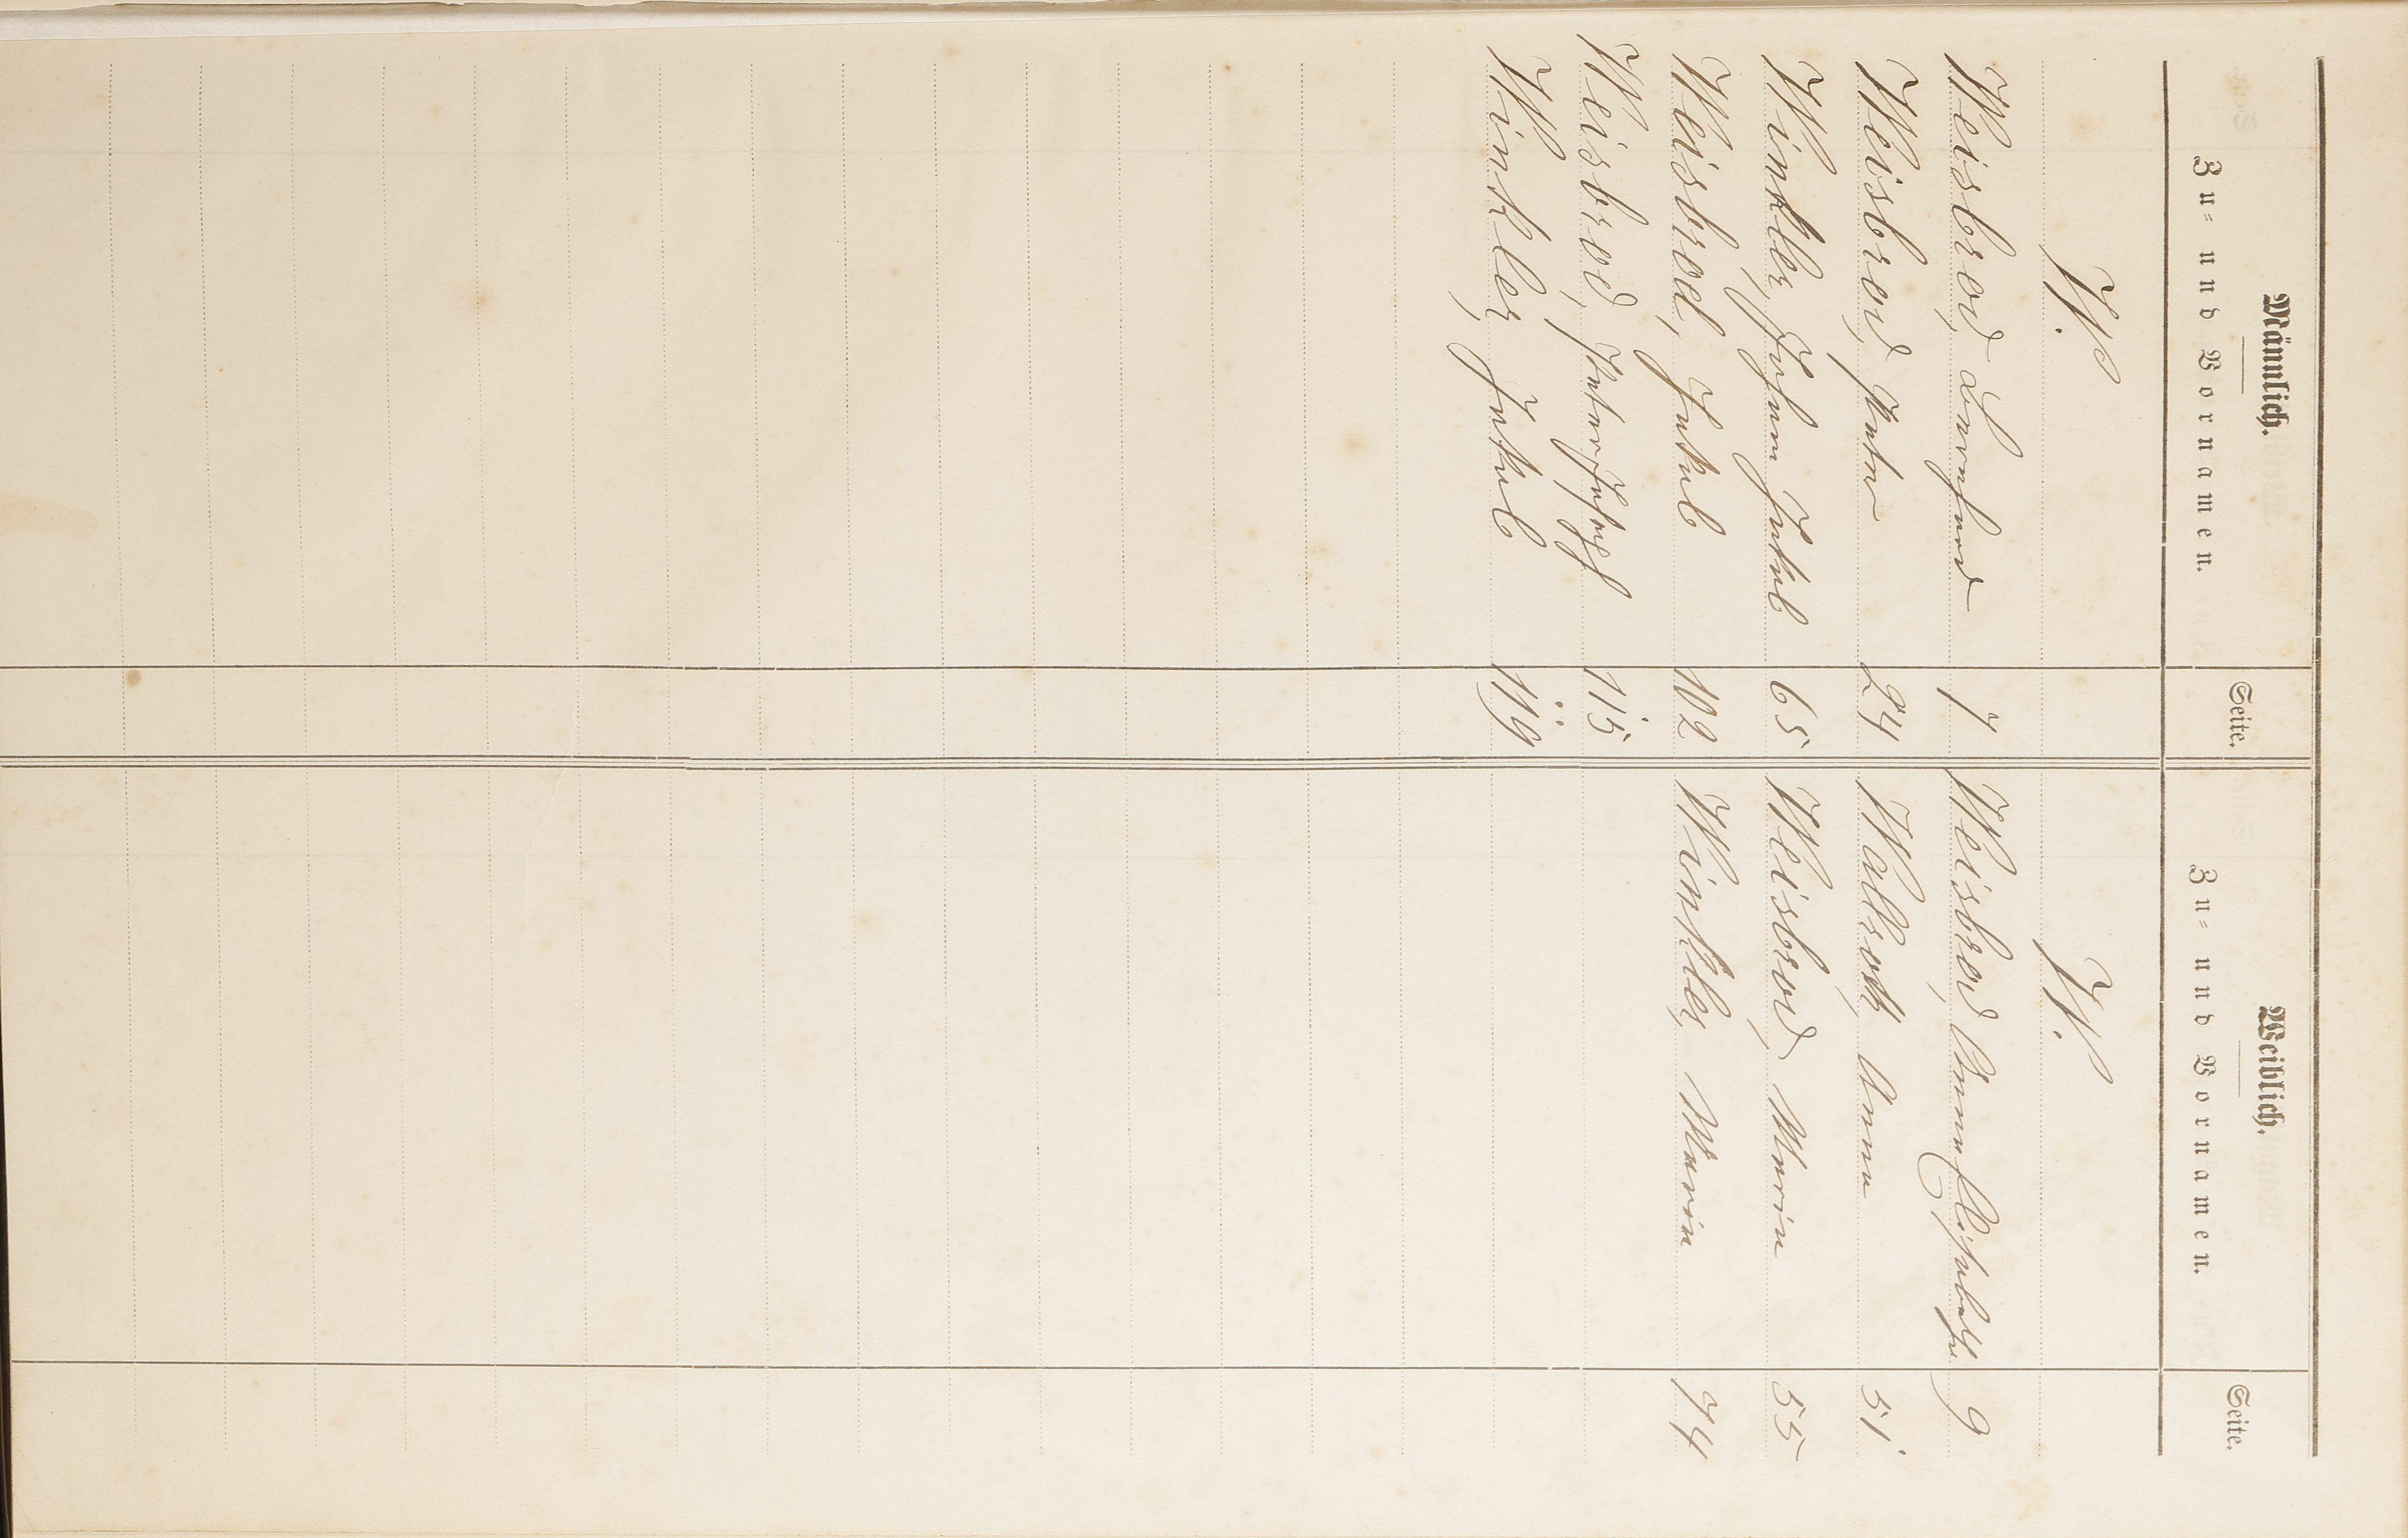 Männlich.
Zu- und Vornamen.
Seite.
W.
Weisbrod, Leonhard 7
Weisbrod, Peter 24
Winkler, Johann Jakob 65
Weisbrod, Jakob 102
Weisbrod, Peter Joseph 115
Winkler, Jakob 119
Weiblich.
Zu- und Vornamen.
Seite.
W.
Weisbrod, Anna Elisabetha 9
Wallroth, Anna 51
Weisbrod, Maria 55
Winkler, Maria 74